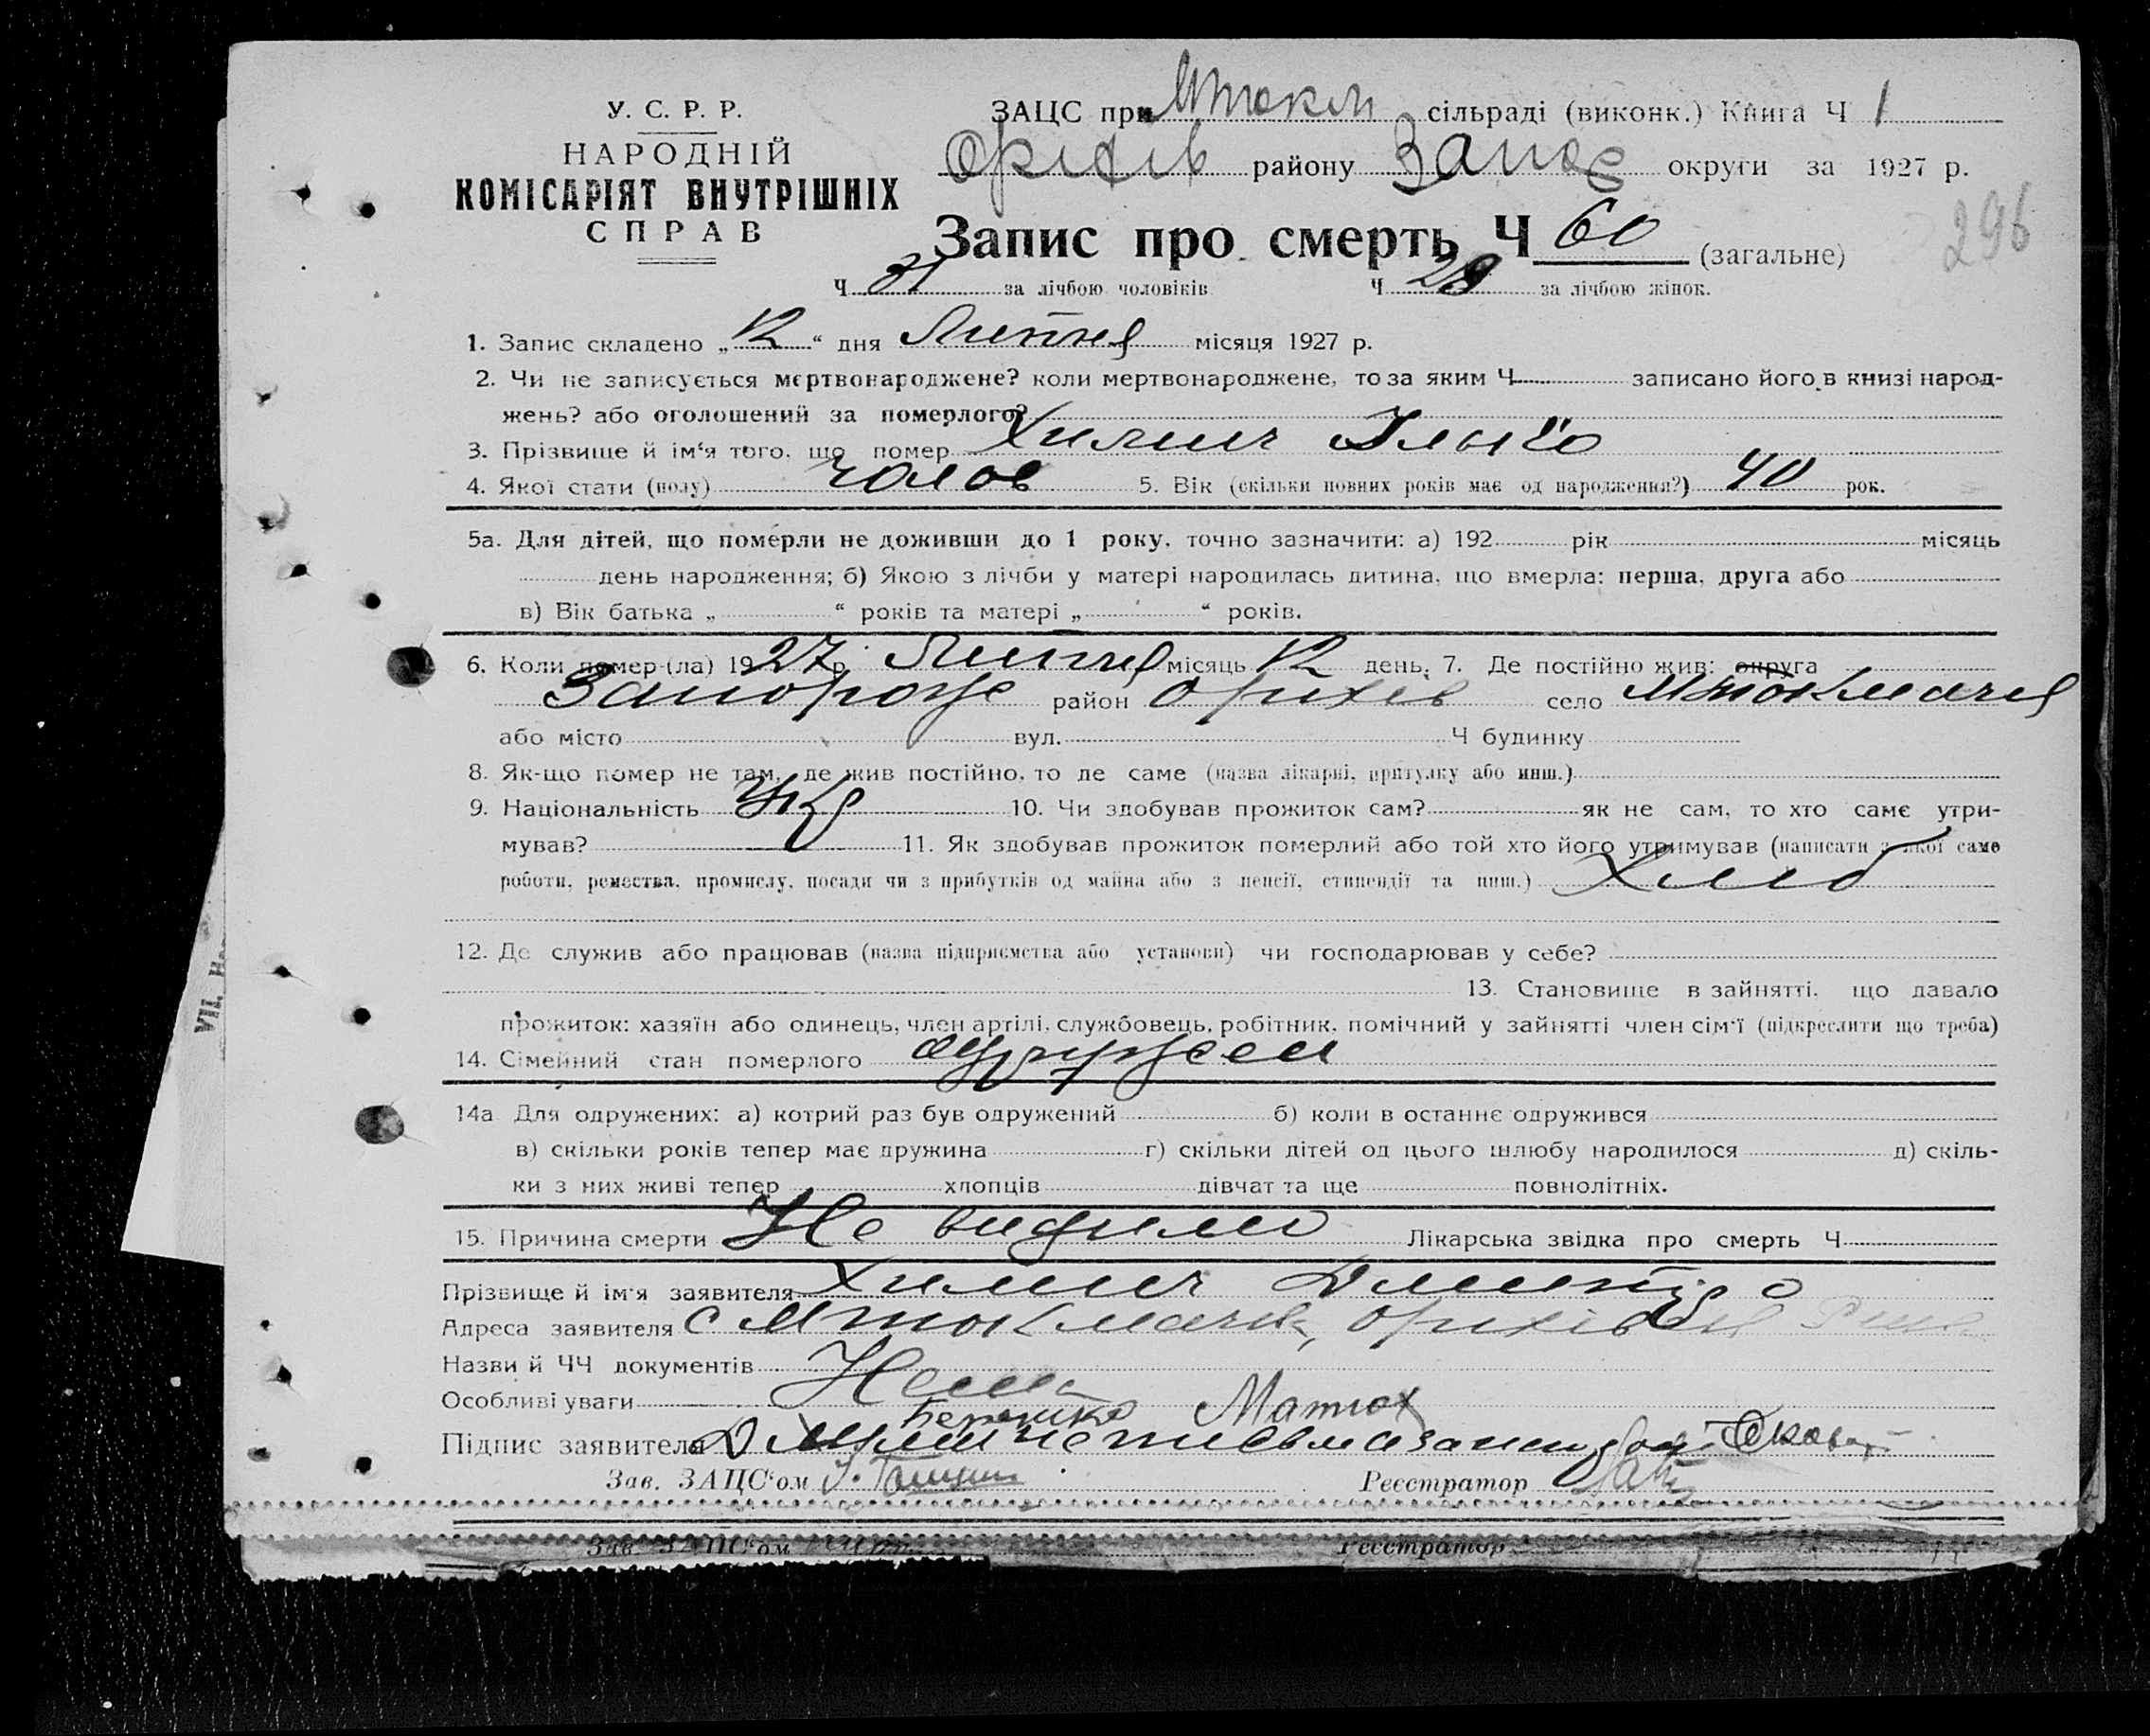 У. С. Р. Р.
НАРОДНІЙ
КОМІСАРІЯТ ВНУТРІШНІХ
СПРАВ
ЗАЦС при Мтокм сільраді (виконк.) Книга Ч 1
Оріхів району Запор округи за 1927 р.
296
Запис про смерть Ч 60 (загальне)
Ч 31 за лічбою чоловіків Ч 29 за лічбою жінок.
1. Запис складено „12“ дня Липня місяця 1927 р.
2. Чи не записується мертвонароджене? коли мертвонароджене, то за яким Ч записано його в книзі народ-
жень? або оголошений за померлого?
3. Прізвище й ім'я того, що помер Химич Ілько
4. Якої стати (полу) чолов 5. Вік (скільки повних років має од народження?) 40 рок.
5а. Для дітей, що померли не доживши до 1 року, точно зазначити: а) 192 рік місяць
день народження; б) Якою з лічби у матері народилась дитина, що вмерла: перша, друга або
в) Вік батька „ “ років та матері „ “ років.
6. Коли помер-(ла) 1927 р. Липня місяць 12 день, 7. Де постійно жив: округа
Запорож район Оріхів село Мтокмачя
або місто вул. Ч будинку
8. Як-що помер не там, де жив постійно, то де саме (назва лікарні, притулку або инш.)
9. Національність Укр 10. Чи здобував прожиток сам? як не сам, то хто саме утри-
мував? 11. Як здобував прожиток померлий або той хто його утримував (написати з якої саме
роботи, ремества, промислу, посади чи з прибутків од майна або з пенсії, стипендії та инш.) Хліб
12. Де служив або працював (назва підприємства або установи) чи господарював у себе?
13. Становище в зайнятті, що давало
прожиток: хазяїн або одинець, член артілі, службовець, робітник, помічний у зайнятті член сім'ї (підкреслити що треба)
14. Сімейний стан померлого одружен
14а Для одружених: а) котрий раз був одружений б) коли в останнє одружився
в) скільки років тепер має дружина г) скільки дітей од цього шлюбу народилося д) скіль-
ки з них живі тепер хлопців дівчат та ще повнолітніх.
15. Причина смерти Не видимо Лікарська звідка про смерть Ч
Прізвище й ім'я заявителя Химич Дмитро
Адреса заявителя с Мтокмачя, Оріхів
Назви й ЧЧ документів Нема
Особливі уваги
Матюх
Підпис заявителя
Зав. ЗАЦС'ом Реєстратор
Зав. ЗАЦС'ом Реєстратор
VII. Н